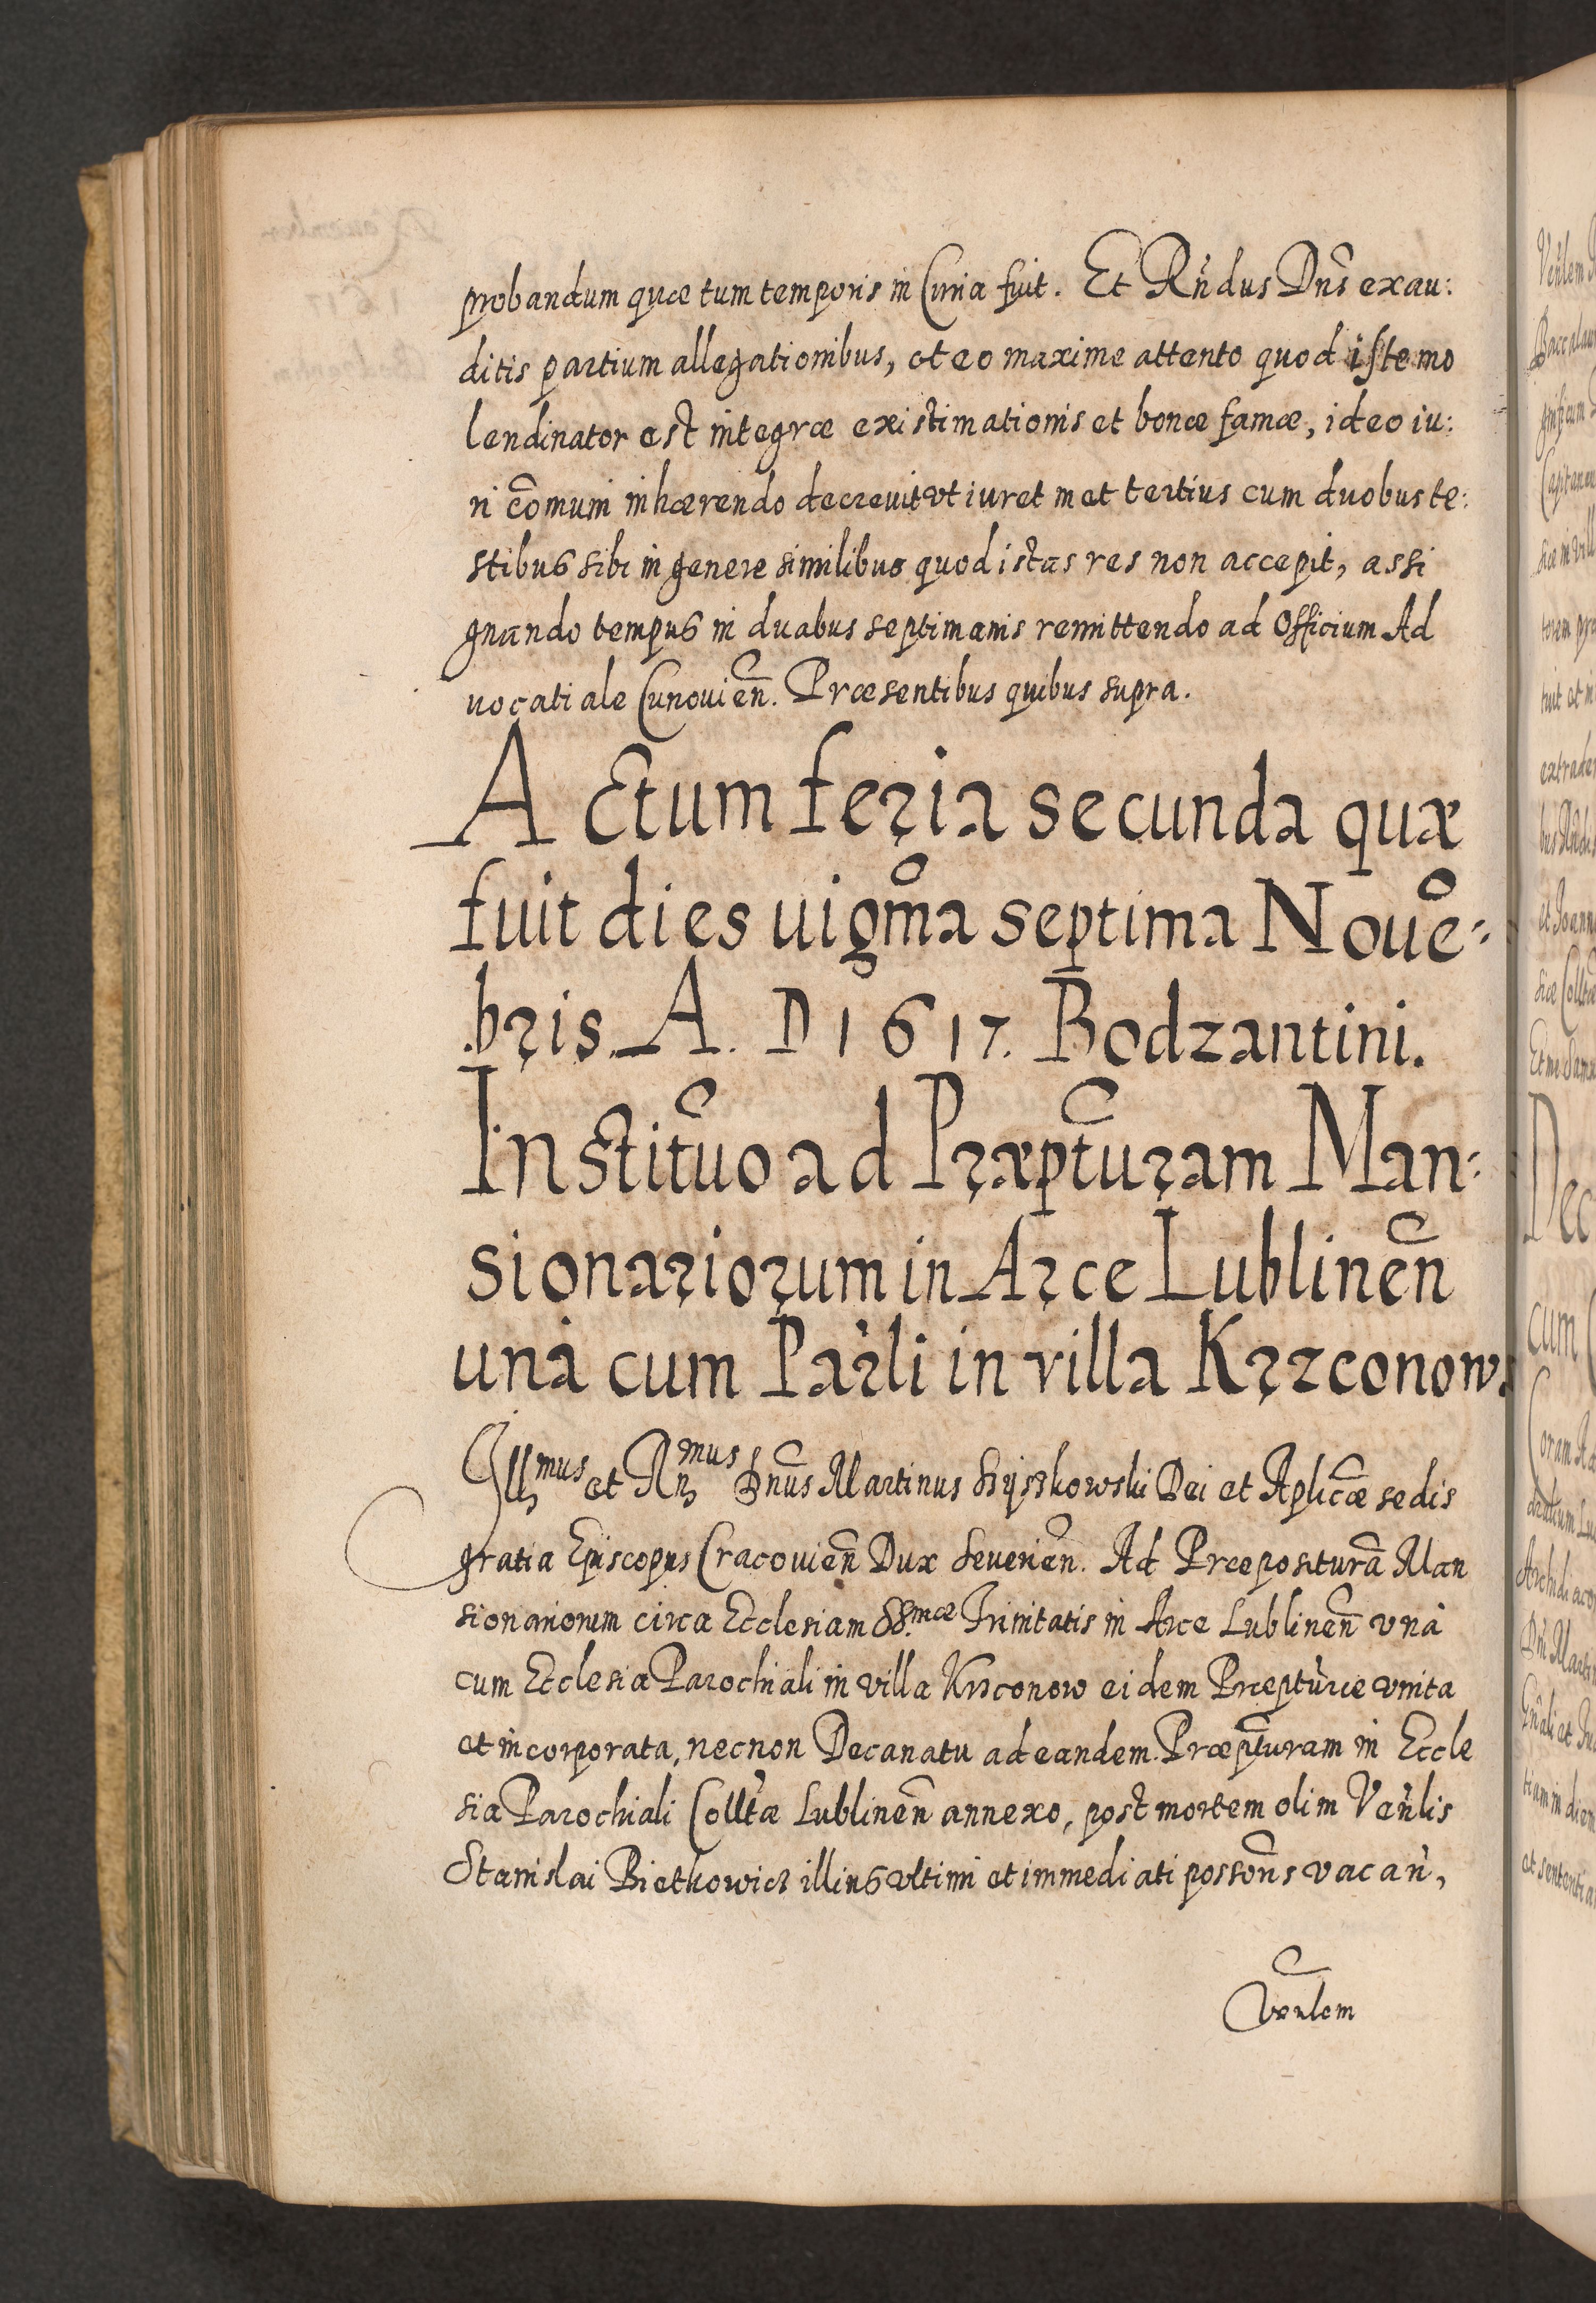 probandum quæ tum temporis in Curia fuit. Et Rñdus Dñs exau:
ditis partium allegationibus, et eo maxime attento quod iste mo
lendinator est integræ existimationis et bonæ famæ, ideo iu:
ri cõmuni inhærendo decrevit vt iuret met tertius cum duobus te:
stibus sibi in genere similibus quod istas res non accepit, assi
gnando tempus in duabus septimanis remittendo ad Officium Ad
uocatiale Cunouien̄. Præsentibus quibus supra.
Actum feria secunda quæ
fuit dies uigm̃a septima Nouē=
bris A. D 1617. Bodzantini.
Institũo ad Præpt̃uram Man=
sionariorum in Arce Lublinen̄
unà cum Par̃li in villa Krzconow.
Illmus et Rn̄mus Dnũs Martinus Szyszkowski Dei et Aplicæ̃ sedis
gratia Episcopus Cracouien̄ Dux Seuerien̄. Ad Præpositurā Man
sionariorum circa Ecclesiam SS.mæ Trinitatis in Arce Lublinen̄ vnà
cum Ecclesia Parochiali in villa Krzconow eidem Præpt̃uræ vnita
et incorporata, necnon Decanatu ad eandem Præpt̃uram in Eccle
sia Parochiali Collt̃æ Lublinen̄ annexo, post mortem olim Veñlis
Stanislai Bietkowicz illius vltimi et immediati possõns vacan̄,
Venlem